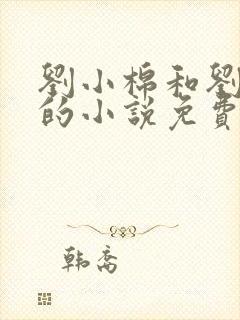 劉小棉和劉
的小說免費
韩乔